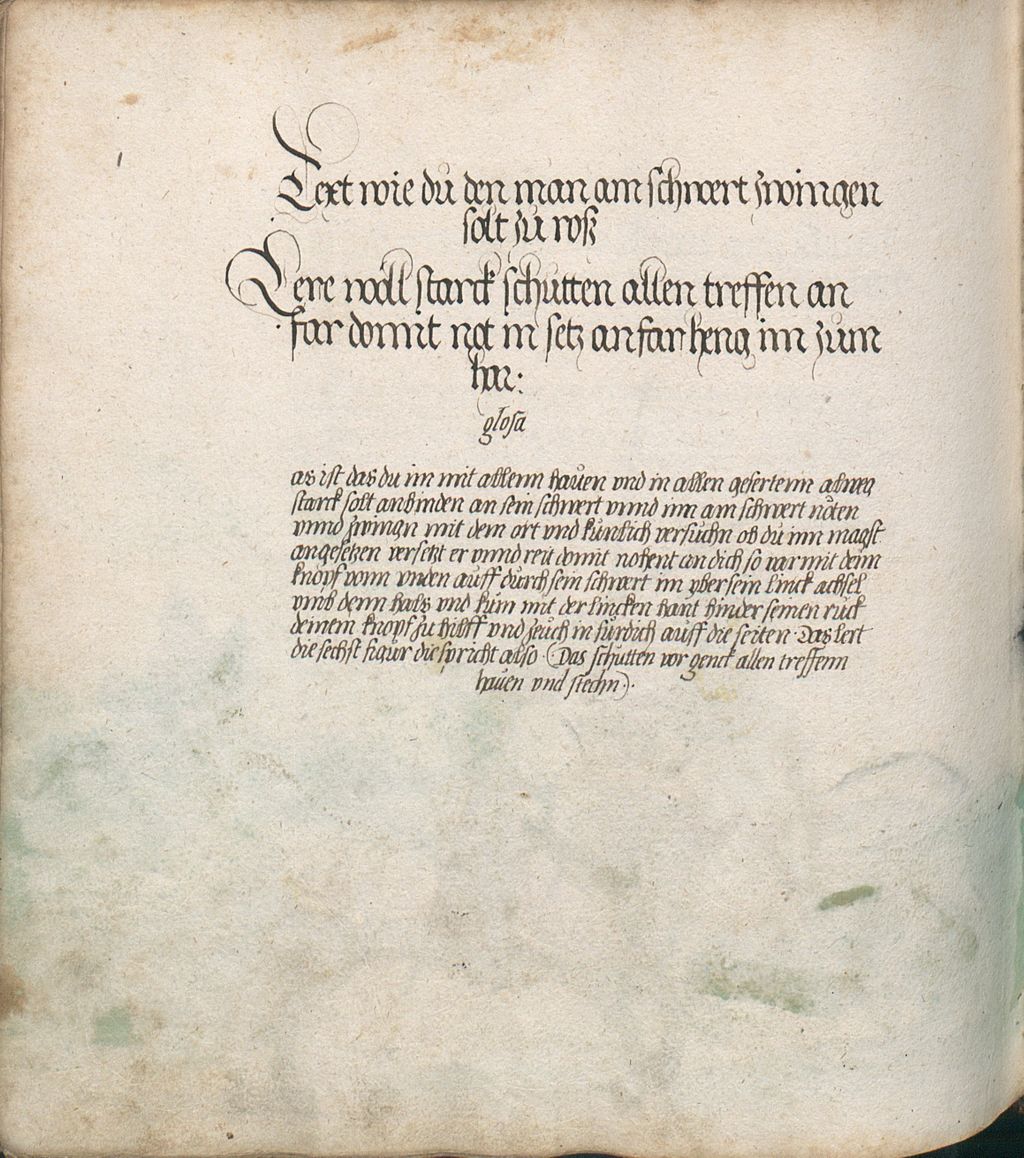 Text wie du den man am schwert zwingen
solt zu roß
Lere woll starck schutten allen treffen an
far domit not in setz an far heng im zum
har:
glosa
as ist das du im mit allenn hauen vnd in allen gefertenn alweg
starck solt anbinden an sein schwert vnnd inn am schwert nöten
vnnd zwingn mit dem ort vnd künlich versuchn ob du inn magst
angesetzen versetzt er vnnd reit domit nohent an dich so var mit deim
knopf vonn vnden auff durch sein schwert im yber sein linck achsel
vmb denn hals vnd kum mit der lincken hant hinder seinen ruck
deinem knopf zu hilff vnd zeuch in für dich auff die seiten · Das lert
die sechst figur die spricht also · (Das schutten vor genck allen treffenn
hauen vnd stechn) ·